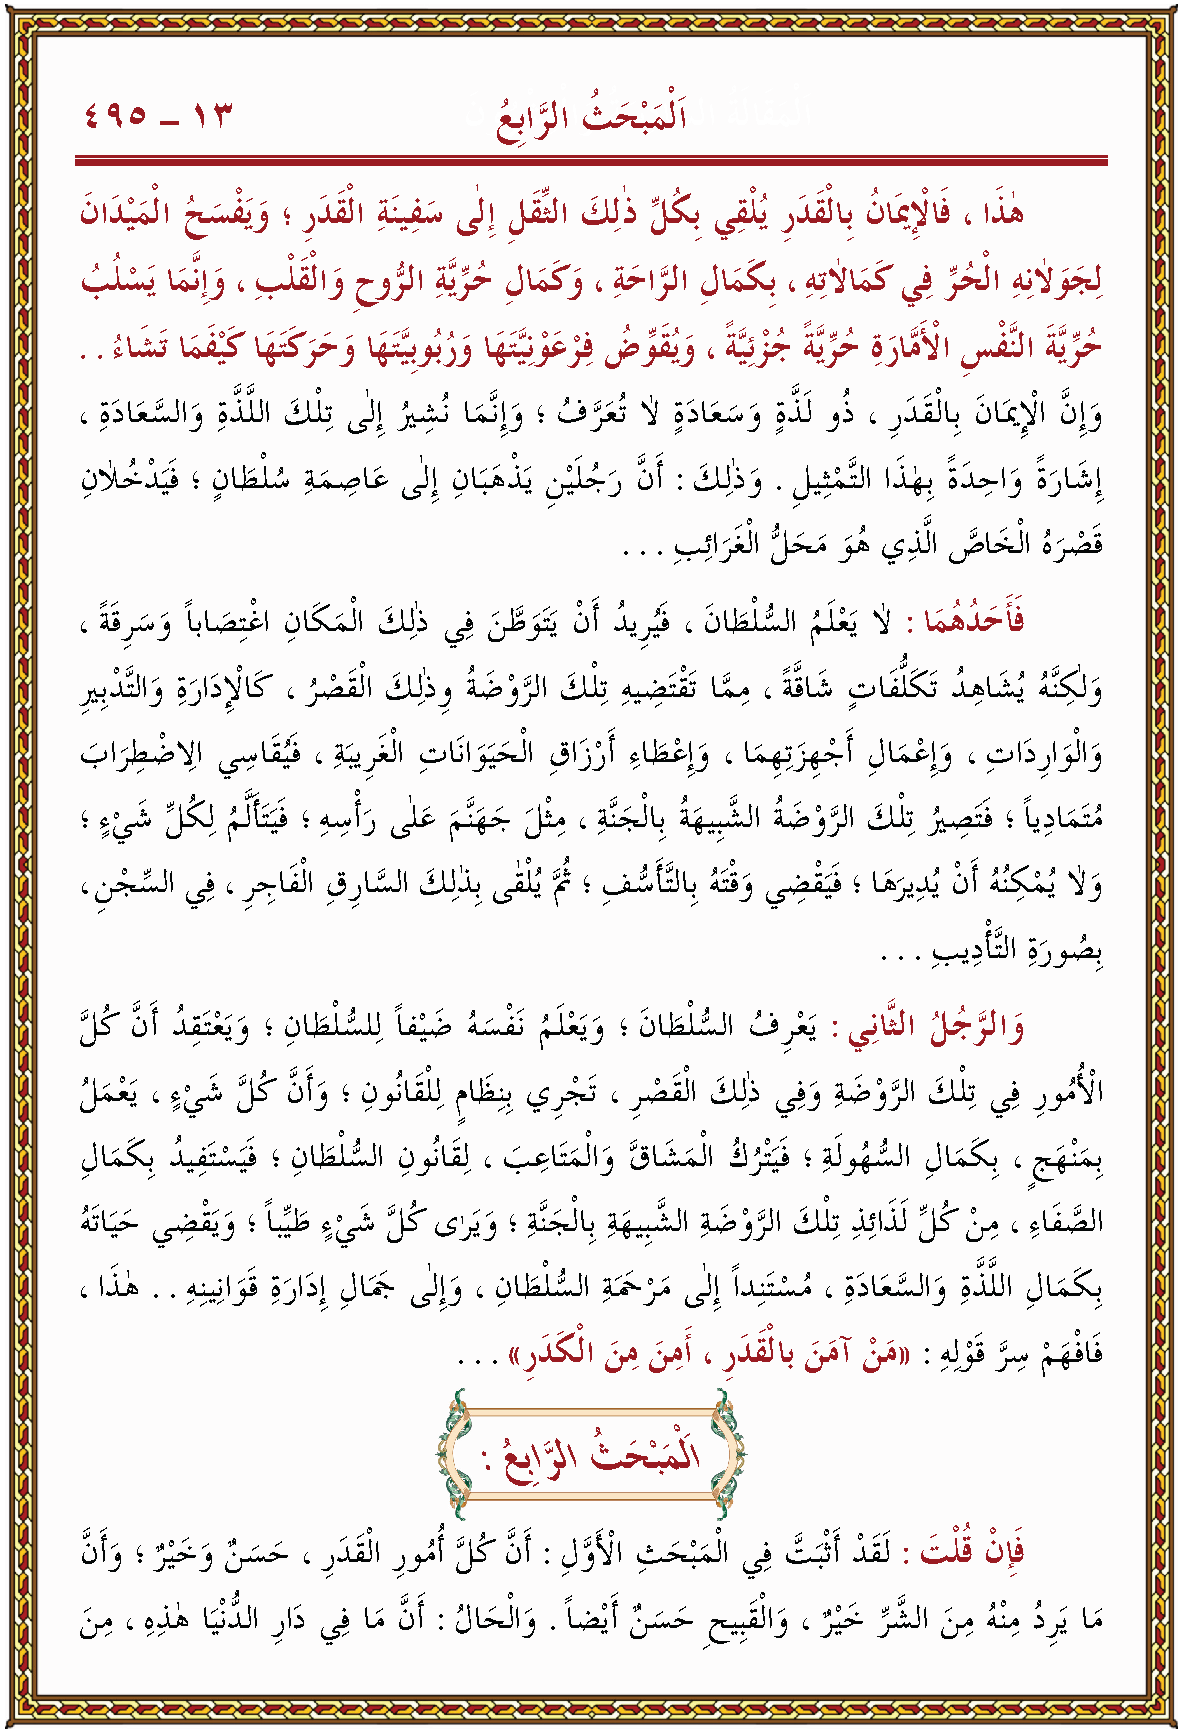 اَلْمَبْحَثُ الرَّابِعُ ١٣ – ٤٩٥
هٰذَا ، فَالْإِيمَانُ بِالْقَدَرِ يُلْقِي بِكُلِّ ذٰلِكَ الثِّقَلِ إِلٰى سَفِينَةِ الْقَدَرِ ؛ وَيَفْسَحُ الْمَيْدَانَ
لِجَوَلاٰنِهِ الْحُرِّ فِي كَمَالاٰتِهِ ، بِكَمَالِ الرَّاحَةِ ، وَكَمَالِ حُرِّيَّةِ الرُّوحِ وَالْقَلْبِ ، وَإِنَّمَا يَسْلُبُ
حُرِّيَّةَ النَّفْسِ الْأَمَّارَةِ حُرِّيَّةً جُزْئِيَّةً ، وَيُقَوِّضُ فِرْعَوْنِيَّتَهَا وَرُبُوبِيَّتَهَا وَحَرَكَتَهَا كَيْفَمَا تَشَاءُ . .
وَإِنَّ الْإِيمَانَ بِالْقَدَرِ ، ذُو لَذَّةٍ وَسَعَادَةٍ لاٰ تُعَرَّفُ ؛ وَإِنَّمَا نُشِيرُ إِلٰى تِلْكَ اللَّذَّةِ وَالسَّعَادَةِ ،
إِشَارَةً وَاحِدَةً بِهٰذَا التَّمْثِيلِ . وَذٰلِكَ : أَنَّ رَجُلَيْنِ يَذْهَبَانِ إِلٰى عَاصِمَةِ سُلْطَانٍ ؛ فَيَدْخُلاٰنِ
قَصْرَهُ الْخَاصَّ الَّذِي هُوَ مَحَلُّ الْغَرَائِبِ . . .
فَأَحَدُهُمَا : لاٰ يَعْلَمُ السُّلْطَانَ ، فَيُرِيدُ أَنْ يَتَوَطَّنَ فِي ذٰلِكَ الْمَكَانِ اغْتِصَاباً وَسَرِقَةً ،
وَلٰكِنَّهُ يُشَاهِدُ تَكَلُّفَاتٍ شَاقَّةً ، مِمَّا تَقْتَضِيهِ تِلْكَ الرَّوْضَةُ وِذٰلِكَ الْقَصْرُ ، كَالْإِدَارَةِ وَالتَّدْبِيرِ
وَالْوَارِدَاتِ ، وَإِعْمَالِ أَجْهِزَتِهِمَا ، وَإِعْطَاءِ أَرْزَاقِ الْحَيَوَانَاتِ الْغَرِيبَةِ ، فَيُقَاسِي الاِضْطِرَابَ
مُتَمَادِياً ؛ فَتَصِيرُ تِلْكَ الرَّوْضَةُ الشَّبِيهَةُ بِالْجَنَّةِ ، مِثْلَ جَهَنَّمَ عَلٰى رَأْسِهِ ؛ فَيَتَأَلَّمُ لِكُلِّ شَيْءٍ ؛
وَلاٰ يُمْكِنُهُ أَنْ يُدِيرَهَا ؛ فَيَقْضِي وَقْتَهُ بِالتَّأَسُّفِ ؛ ثُمَّ يُلْقٰى بِذٰلِكَ السَّارِقِ الْفَاجِرِ ، فِي السِّجْنِ ،
بِصُورَةِ التَّأْدِيبِ . . .
وَالرَّجُلُ الثَّانِي : يَعْرِفُ السُّلْطَانَ ؛ وَيَعْلَمُ نَفْسَهُ ضَيْفاً لِلسُّلْطَانِ ؛ وَيَعْتَقِدُ أَنَّ كُلَّ
الْأُمُورِ فِي تِلْكَ الرَّوْضَةِ وَفِي ذٰلِكَ الْقَصْرِ ، تَجْرِي بِنِظَامٍ لِلْقَانُونِ ؛ وَأَنَّ كُلَّ شَيْءٍ ، يَعْمَلُ
بِمَنْهَجٍ ، بِكَمَالِ السُّهُولَةِ ؛ فَيَتْرُكُ الْمَشَاقَّ وَالْمَتَاعِبَ ، لِقَانُونِ السُّلْطَانِ ؛ فَيَسْتَفِيدُ بِكَمَالِ
الصَّفَاءِ ، مِنْ كُلِّ لَذَائِذِ تِلْكَ الرَّوْضَةِ الشَّبِيهَةِ بِالْجَنَّةِ ؛ وَيَرٰى كُلَّ شَيْءٍ طَيِّباً ؛ وَيَقْضِي حَيَاتَهُ
بِكَمَالِ اللَّذَّةِ وَالسَّعَادَةِ ، مُسْتَنِداً إِلٰى مَرْحَمَةِ السُّلْطَانِ ، وَإِلٰى جَمَالِ إِدَارَةِ قَوَانِينِهِ . . هٰذَا ،
فَافْهَمْ سِرَّ قَوْلِهِ : «مَنْ آمَنَ بِالْقَدَرِ ، أَمِنَ مِنَ الْكَدَرِ» . . .
اَلْمَبْحَثُ الرَّابِعُ :
فَإِنْ قُلْتَ : لَقَدْ أَثْبَتَّ فِي الْمَبْحَثِ الْأَوَّلِ : أَنَّ كُلَّ أُمُورِ الْقَدَرِ ، حَسَنٌ وَخَيْرٌ ؛ وَأَنَّ
مَا يَرِدُ مِنْهُ مِنَ الشَّرِّ خَيْرٌ ، وَالْقَبِيحِ حَسَنٌ أَيْضاً . وَالْحَالُ : أَنَّ مَا فِي دَارِ الدُّنْيَا هٰذِهِ ، مِنَ